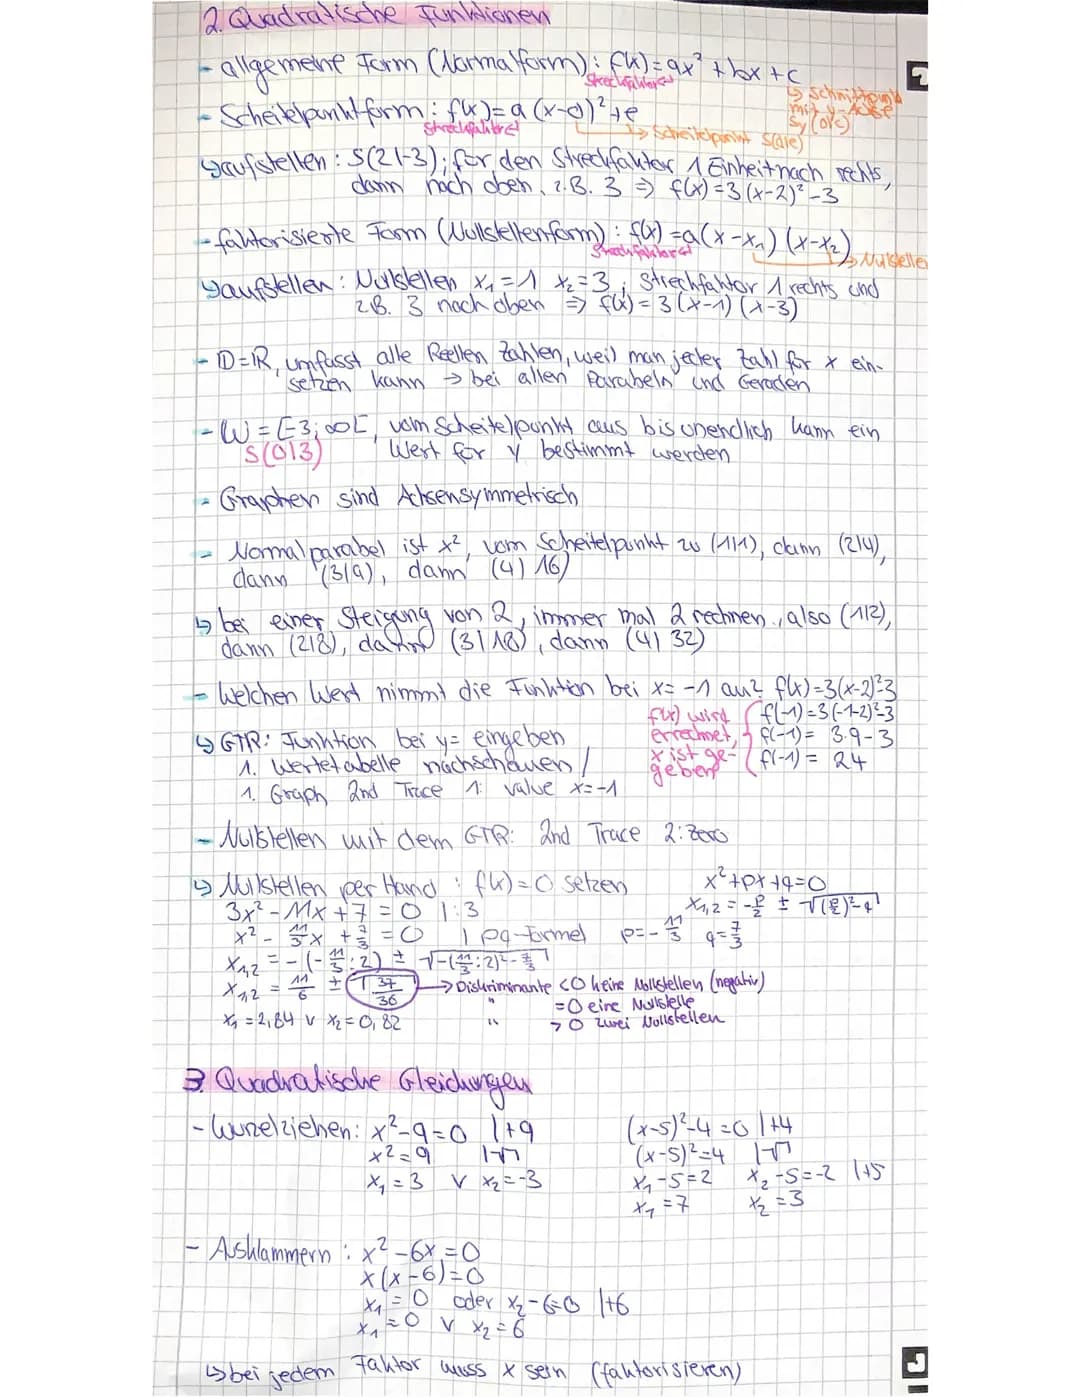 2. Quadratische Funktionen
- allgemeine Form (Normalform): f(x)=ax² + bx + c
Streckfaktor
↳ Schnittpunkt
mit y-Achse
Sy (0|c)
- Scheitelpunktform: f(x)= a (x-d)² + e
Streckfaktor
↳ Scheitelpunkt S(d|e)
↳ aufstellen: S(2|-3); für den Streckfaktor 1 Einheit nach rechts,
dann nach oben, z.B. 3 ⇒ f(x)=3(x-2)²-3
- faktorisierte Form (Nullstellenform): f(x)=a(x-x₁)(x-x₂)
Streckfaktor
↳ Nullstellen
↳ aufstellen: Nullstellen x₁=1 x₂=3; Streckfaktor 1 rechts und
z.B. 3 nach oben ⇒ f(x)=3(x-1)(x-3)
- D=ℝ, umfasst alle Reellen Zahlen, weil man jeder Zahl für x ein-
setzen kann → bei allen Parabeln und Geraden
- W=[-3;∞[, vom Scheitelpunkt aus bis unendlich kann ein
S(0|3) Wert für y bestimmt werden
- Graphen sind Achsensymmetrisch
- Normalparabel ist x², vom Scheitelpunkt zu (1|1), dann (2|4),
dann (3|9), dann (4|16)
↳ bei einer Steigung von 2, immer mal 2 rechnen, also (1|2),
dann (2|8), dann (3|18), dann (4|32)
- Welchen Wert nimmt die Funktion bei x=-1 an? f(x)=3(x-2)²-3
f(x) wird f(-1)=3(-1-2)²-3
↳ GTR: Funktion bei y= eingeben errechnet, f(-1)= 3·9-3
1. Wertetabelle nachschauen / x ist ge- f(-1)= 24
geben
1. Graph 2nd Trace 1: value x=-1
- Nullstellen mit dem GTR: 2nd Trace 2: Zero
↳ Nullstellen per Hand: f(x)=0 setzen x²+px+q=0
3x²-11x+7=0 |:3 x₁,₂ = -p/2 ± √(p/2)²-q
x² - 11/3 x + 7/3 = 0 | pq-Formel p=-11/3 q=7/3
x₁,₂ = -(-11/3:2) ± √-(11/3:2)²-7/3
x₁,₂ = 11/6 ± √37/36 → Diskriminante <0 keine Nullstellen (negativ)
" =0 eine Nullstelle
x₁=2,84 v x₂=0,82 " >0 zwei Nullstellen
3. Quadratische Gleichungen
- Wurzelziehen: x²-9=0 |+9 (x-5)²-4=0 |+4
x²=9 |√ (x-5)²=4 |√
x₁=3 v x₂=-3 x₁-5=2 x₂-5=-2 |+5
x₁=7 x₂=3
- Ausklammern: x²-6x=0
x(x-6)=0
x₁=0 oder x₂-6=0 |+6
x₁=0 v x₂=6
↳ bei jedem Faktor muss x sein (faktorisieren)